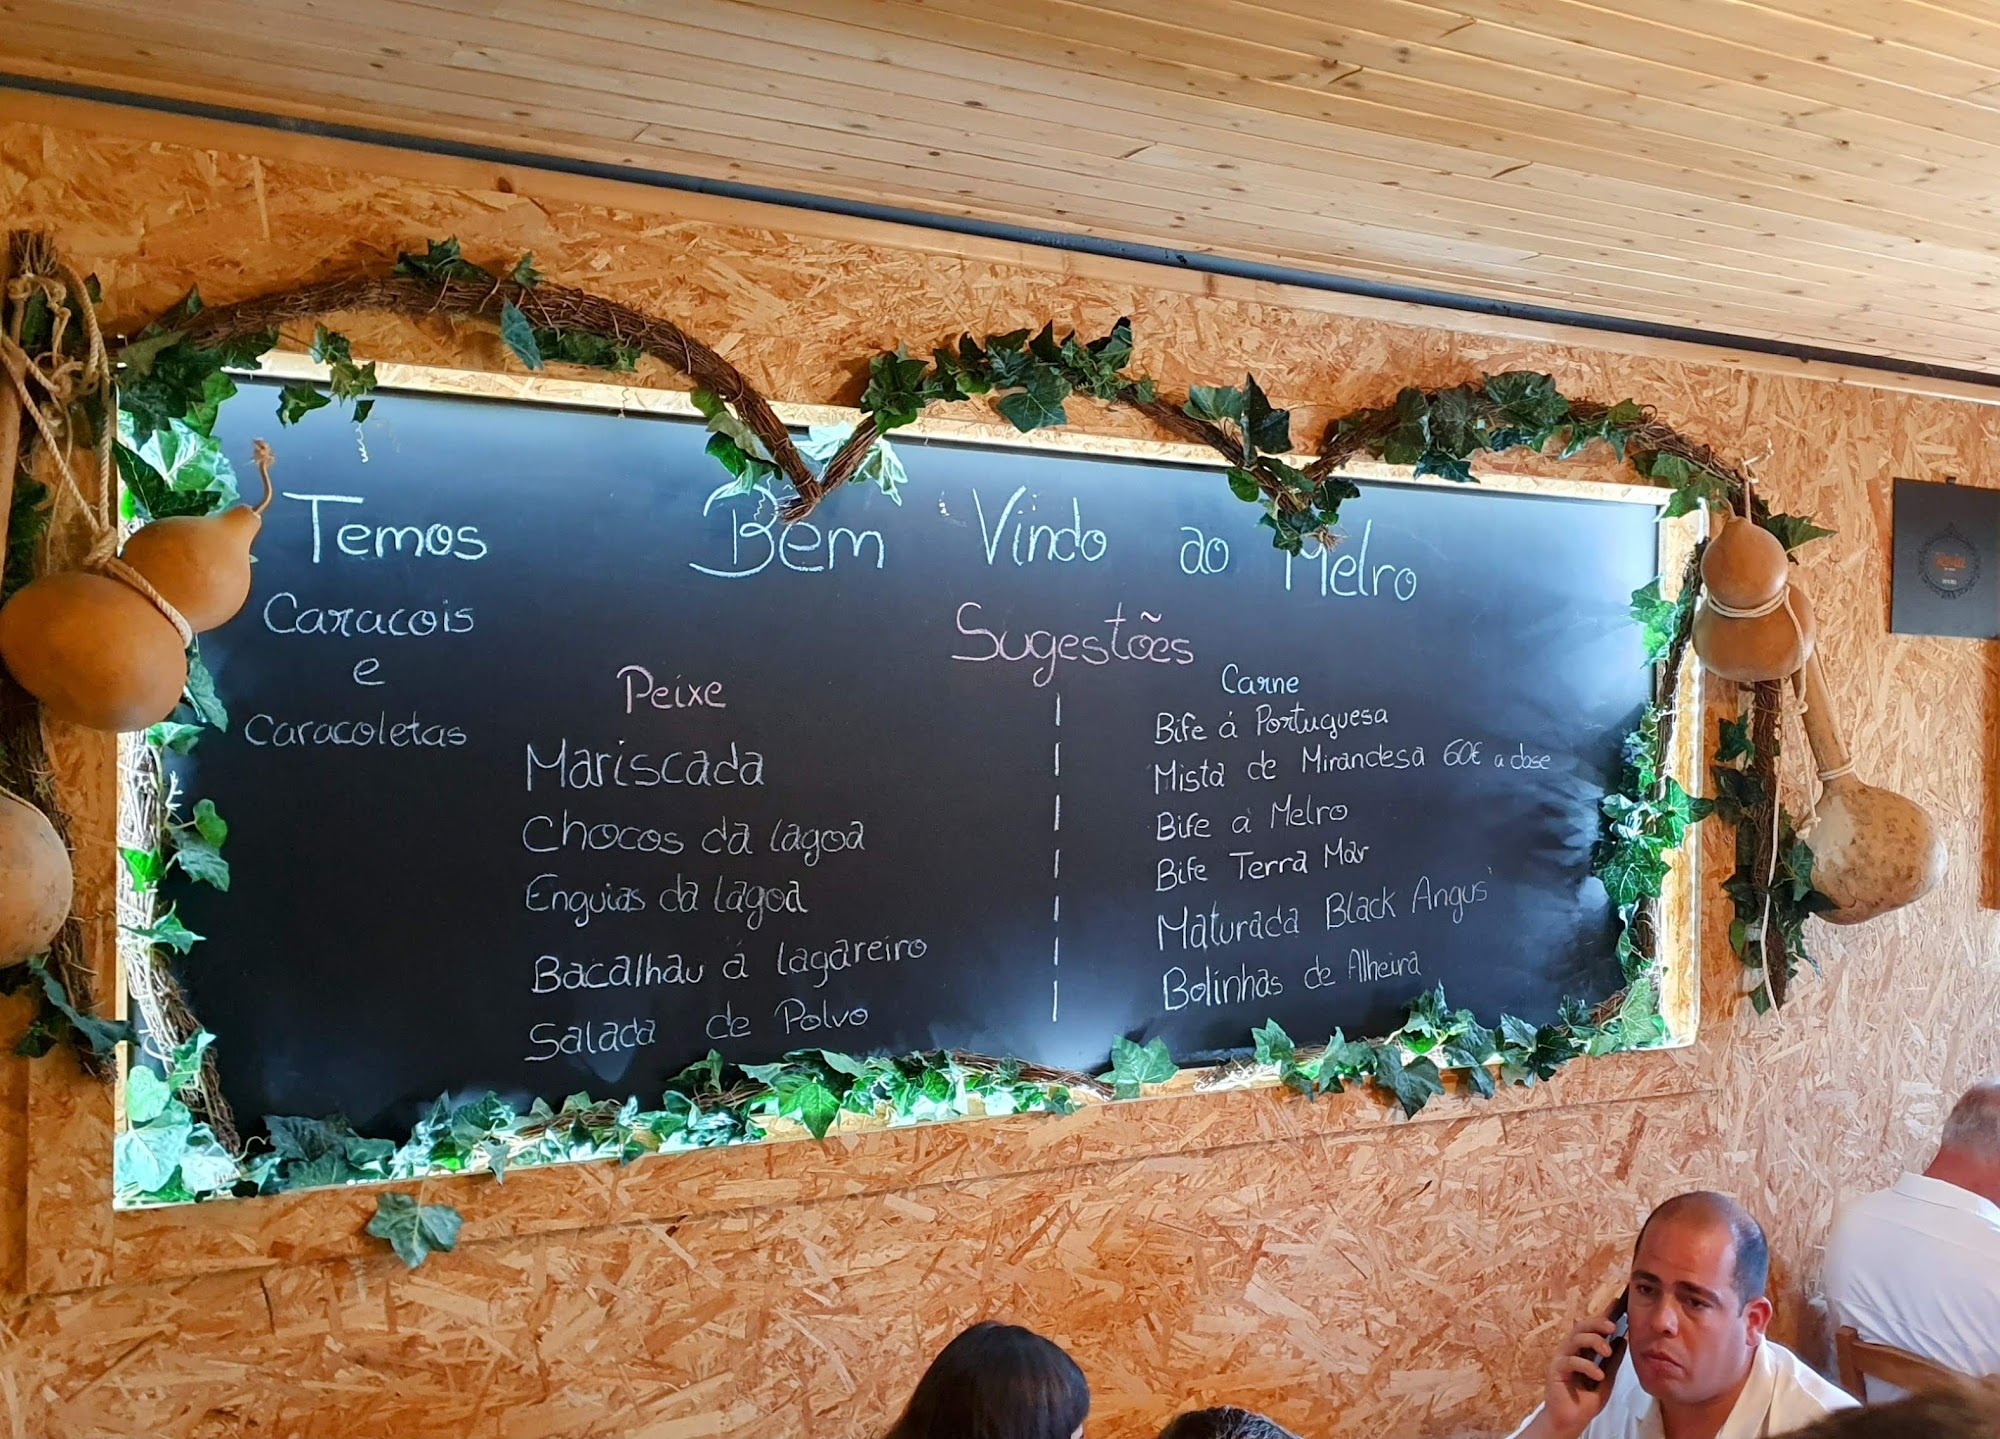 Temos
Caracois
e
Caracoletas
Bem Vindo ao Melro
Sugestões
Peixe
Mariscada
Chocos da lagoa
Enguias da lagoa
Bacalhau á lagareiro
Salada de Polvo
Carne
Bife á Portuguesa
Mista de Mirandesa 60€ a dose
Bife a Melro
Bife Terra Mar
Maturada Black Angus
Bolinhas de Alheira